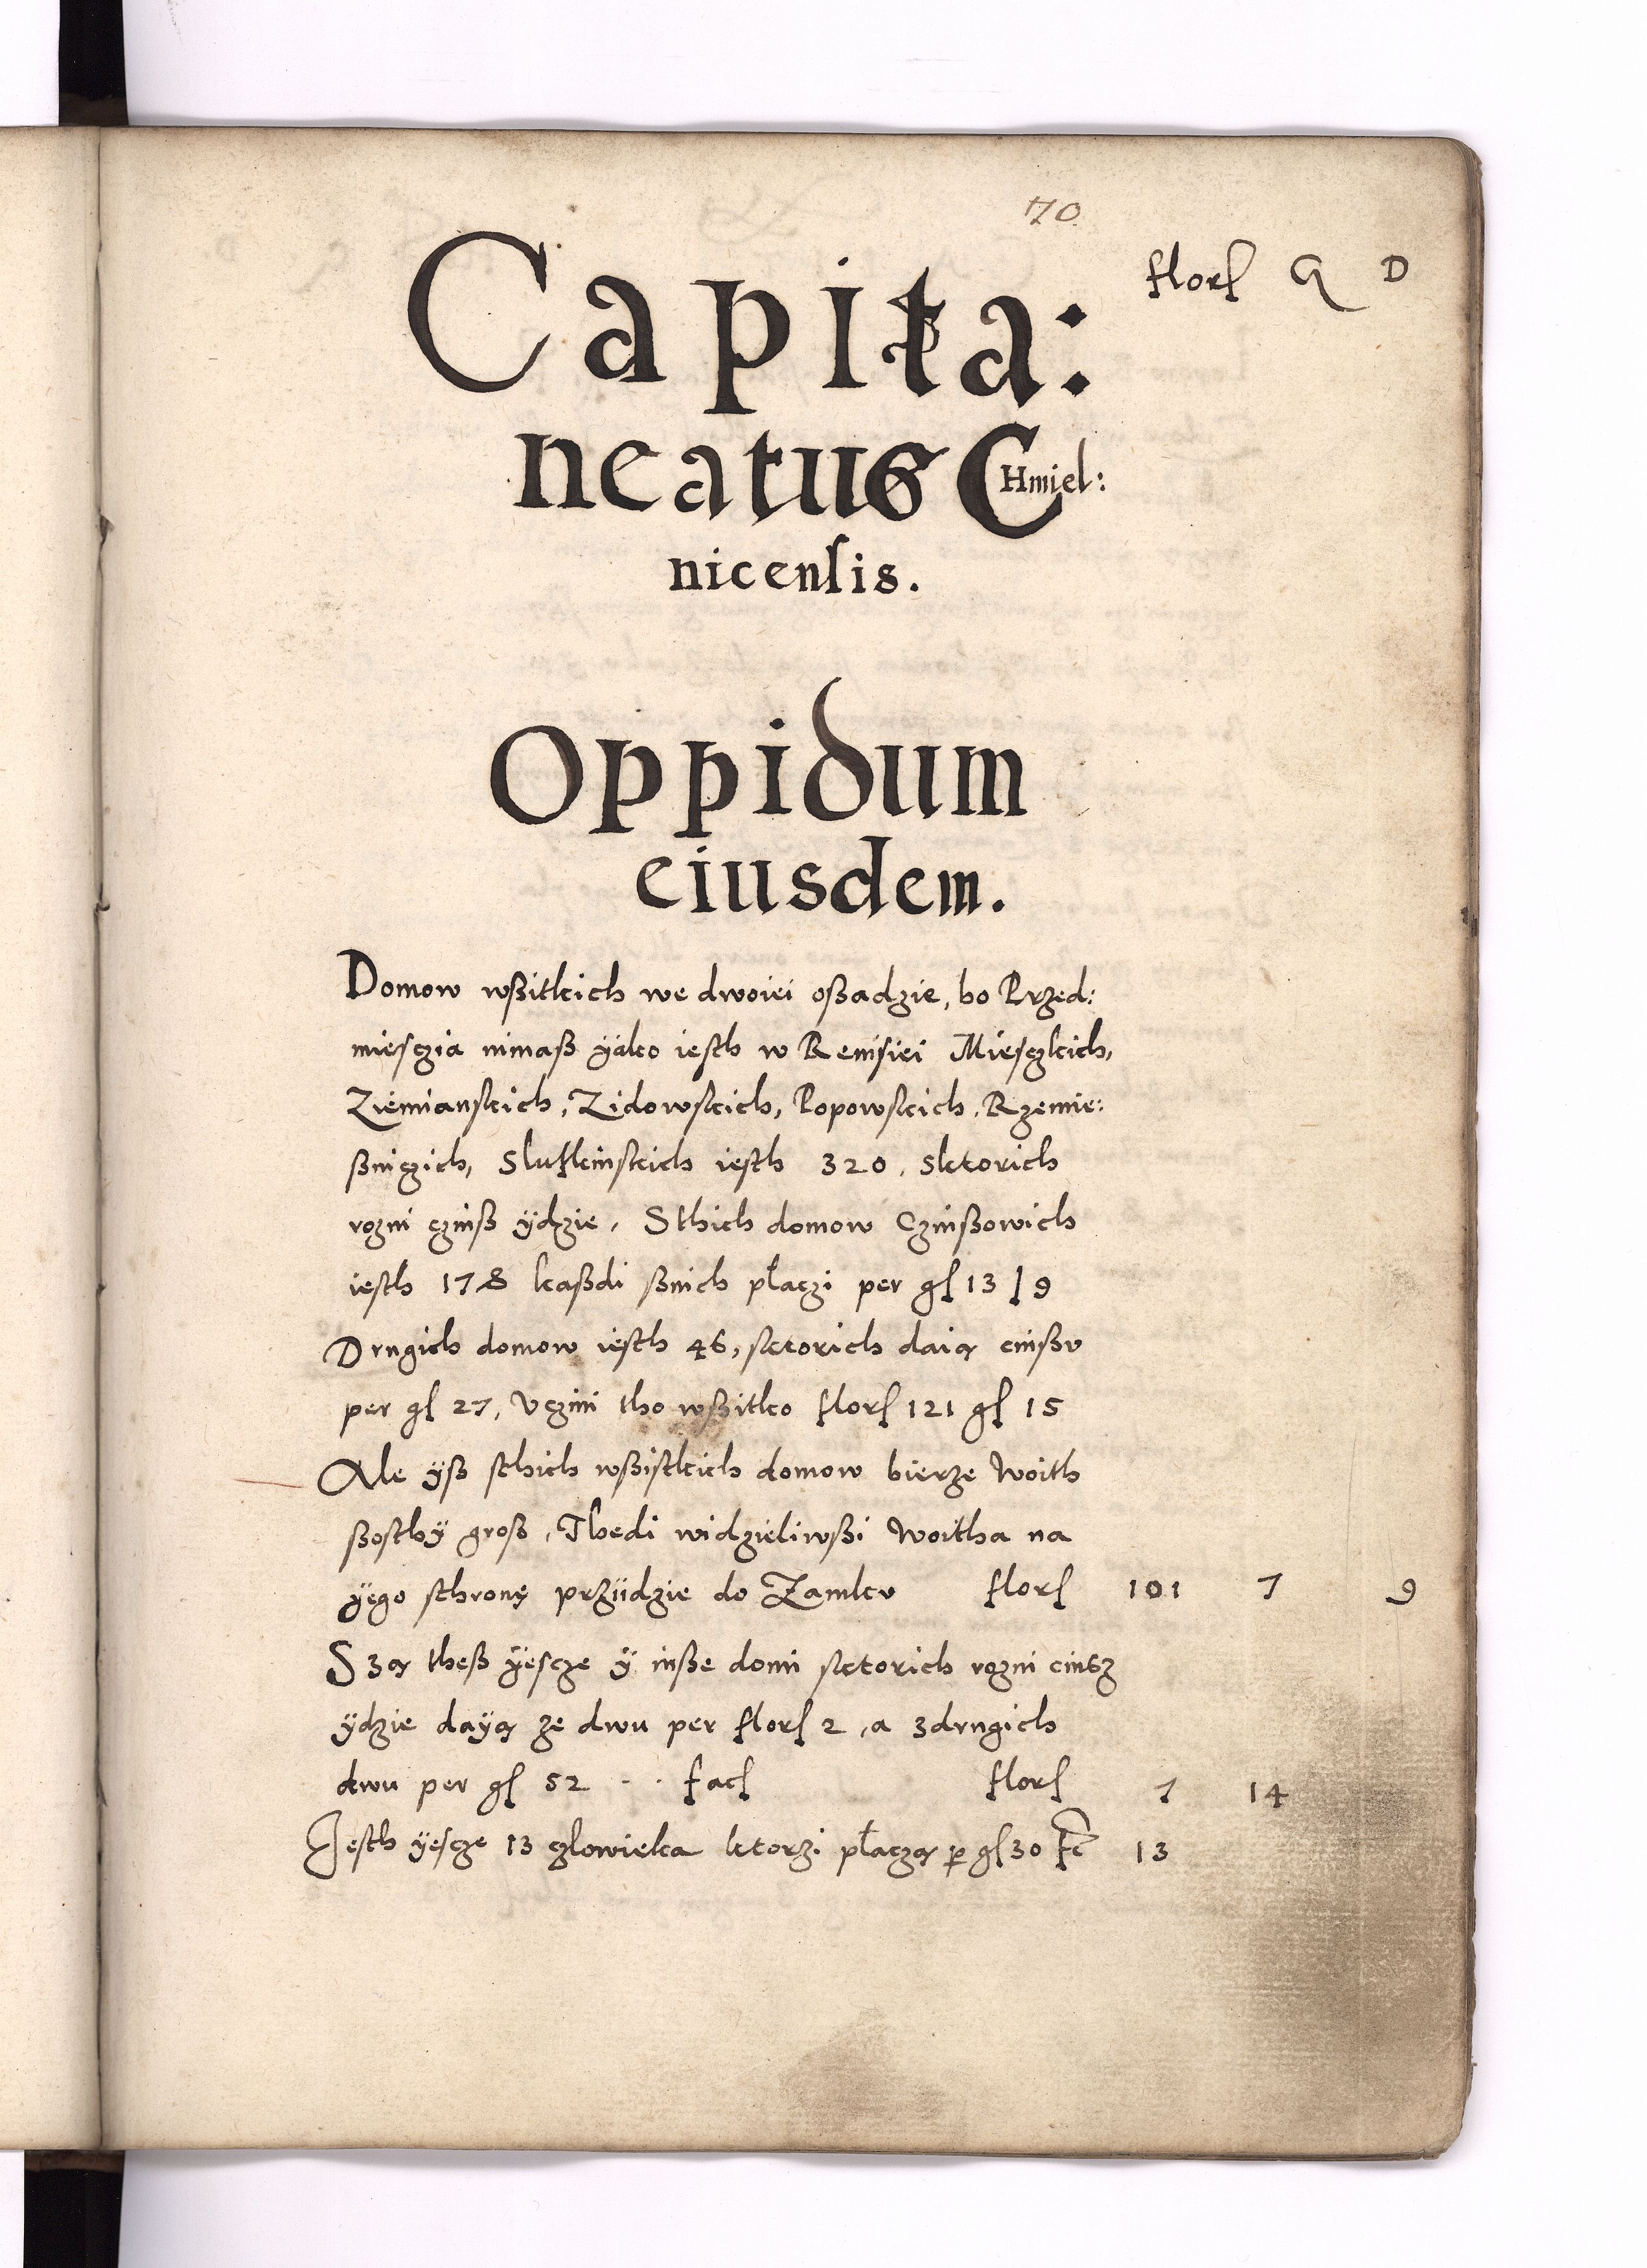 70
florſ G D
Capita:
neatus CHmiel:
nicenſis.
Oppidum
eiusdem.
Domow wßitkich we dwoiei oßadzie, bo Przed:
mieſczia nimaß ÿako ieſth w Remiſiei Mieſczkich,
Ziemianſkich, Zidowſkich, Popowſkich, Rzemie:
ßniczich, Slußkinſkich ieſth 320, Sktorich
rozni czinß ÿdzie, Sthich domow Czinßowich
ieſth 178 kaßdi ßnich płaczi per gſ 13 ſ 9
Drugich domow ieſth 46, sktorich daią cinßu
per gſ 27, Vczini tho wßitko florſ 121 gſ 15
Ale ÿß ſthich wßiſtkich domow bierze Woith
ßoſthÿ groß, Thedi widzieliwßi Woitha na
ÿego ſthronę prziidzie do Zamku florſ 101 7 9
Szą theß ÿeſcze ÿ inße domi sktorich rozni cinsz
ÿdzie daÿą ze dwu per florſ 2, a zdrugich
dwu per gſ 52 - . facſ florſ 7 14
Ieſth ÿeſcze 13 człowieka ktorzi płaczą p gſ 30 Fc 13